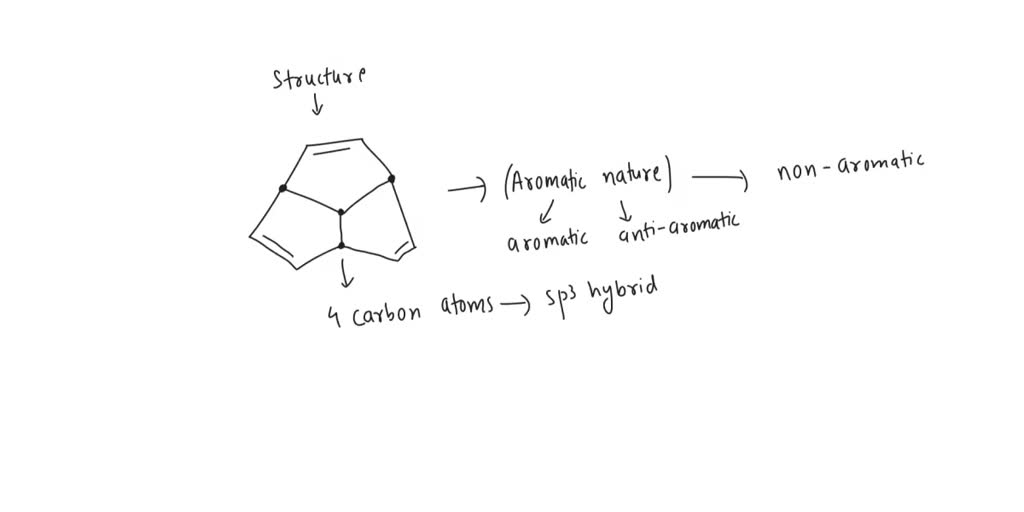 Structure
(Aromatic nature)
non-aromatic
aromatic
anti-aromatic
4 carbon atoms → sp3 hybrid